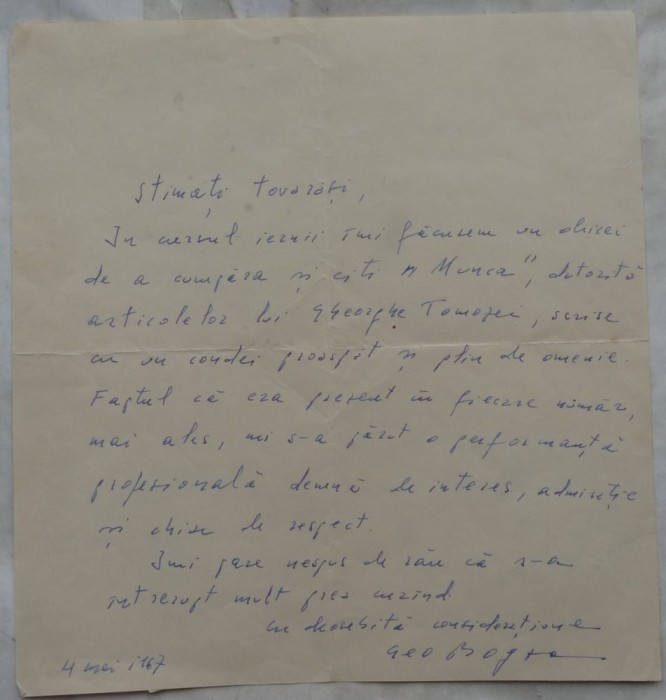 Stimați tovarăși,
In cursul iernii îmi făcusem un obicei
de a cumpăra și citi "Munca", datorită
articolelor lui Gheorghe Tomozei, scrise
cu un condei proaspăt și plin de omenie.
Faptul că era prezent în fiecare număr,
mai ales, mi s-a părut o performanță
profesională demnă de interes, admirație
și chiar de respect.
Imi pare nespus de rău că s-a
întrerupt mult prea curînd.
cu deosebită considerațiune
Geo Bogza
4 mai 1967